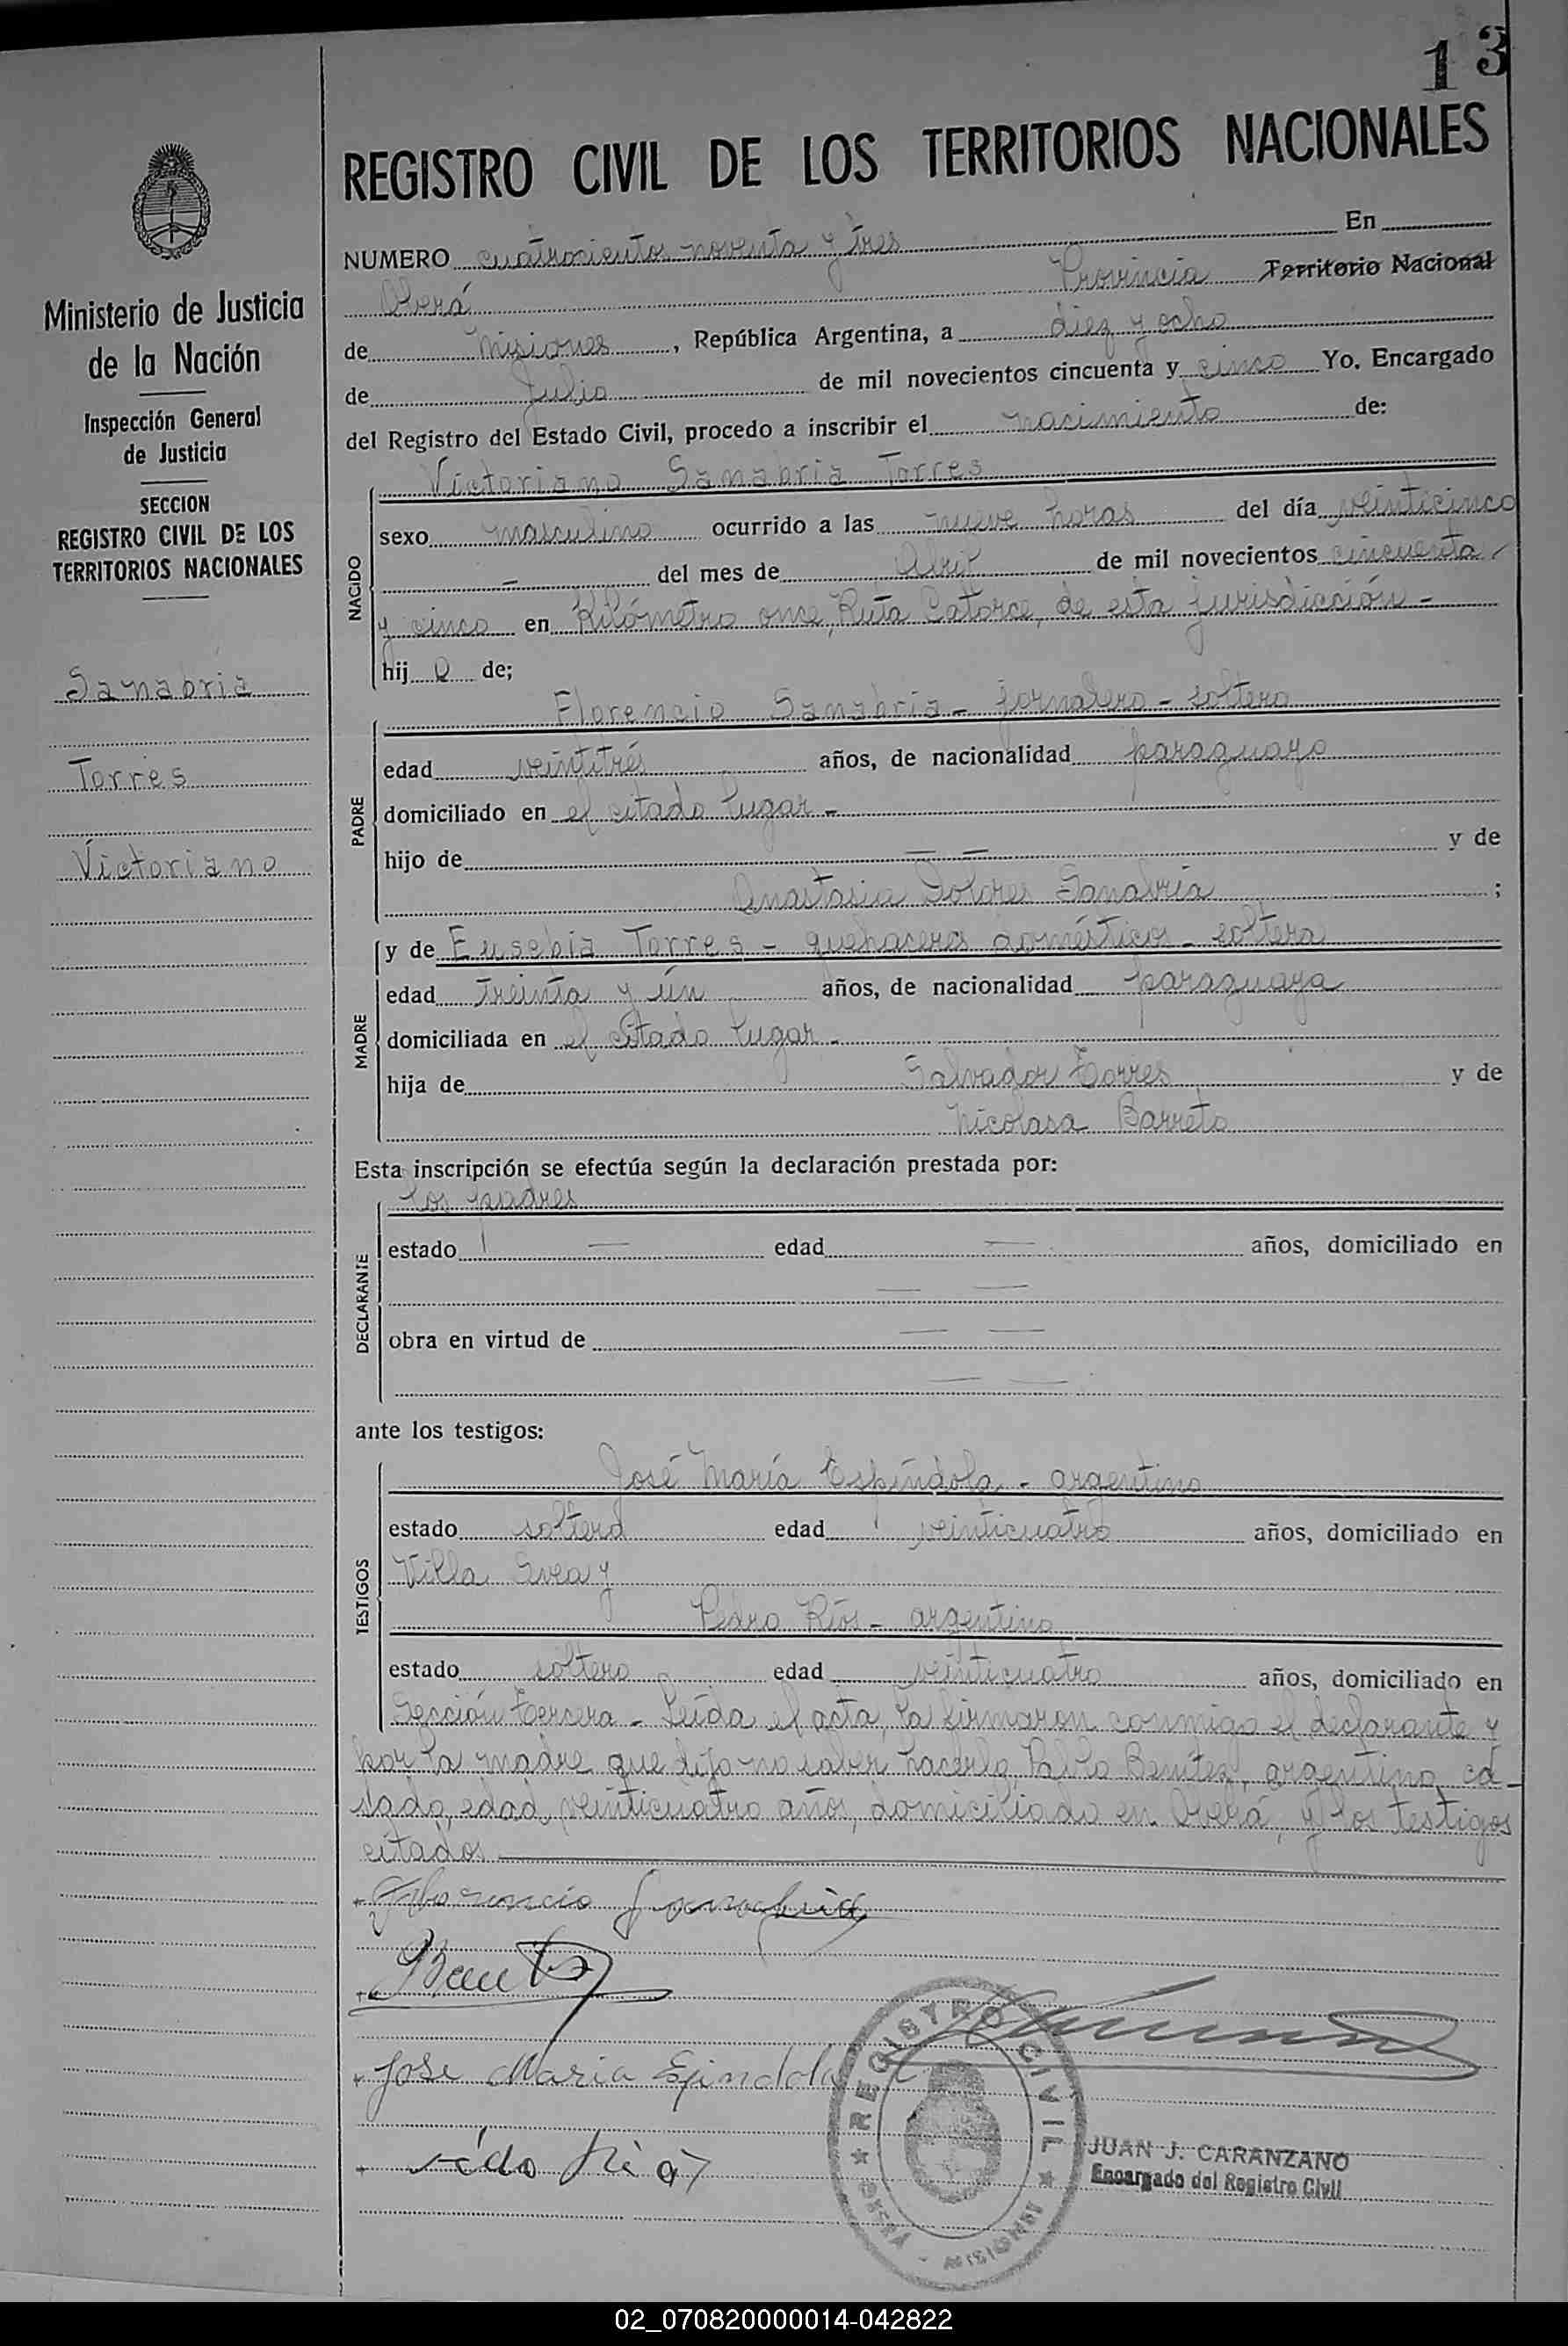 13
REGISTRO CIVIL DE LOS TERRITORIOS NACIONALES
Ministerio de Justicia
de la Nación
Inspección General
de Justicia
SECCION
REGISTRO CIVIL DE LOS
TERRITORIOS NACIONALES
Sanabria
Torres
Victoriano
NUMERO cuatrocientos noventa y tres En
Oberá Provincia Territorio Nacional
de Misiones, República Argentina, a diez y ocho
de Julio de mil novecientos cincuenta y cinco Yo, Encargado
del Registro del Estado Civil, procedo a inscribir el nacimiento de:
NACIDO
Victoriano Sanabria Torres
sexo masculino ocurrido a las nueve horas del día veinticinco
- del mes de Abril de mil novecientos cincuenta
y cinco en Kilómetro once, Ruta Catorce, de esta jurisdicción -
hij o de;
PADRE
Florencio Sanabria - jornalero - soltero
edad veintitrés años, de nacionalidad paraguaya
domiciliado en el citado lugar -
hijo de — — y de
Anastasia Dolores Sanabria ;
MADRE
y de Eusebia Torres - quehaceres domésticos - soltera
edad treinta y ún años, de nacionalidad paraguaya
domiciliada en el citado lugar -
hija de Salvador Torres y de
Nicolasa Barreto
Esta inscripción se efectúa según la declaración prestada por:
DECLARANTE
los padres
estado — edad — años, domiciliado en
— —
obra en virtud de — —
— —
ante los testigos:
TESTIGOS
José María Espíndola - argentino
estado soltero edad veinticuatro años, domiciliado en
Villa Svea y
Pedro Ríos - argentino
estado soltero edad veinticuatro años, domiciliado en
Sección Tercera - Leída el acta, la firmaron conmigo el declarante y
por la madre que dijo no saber hacerlo, Pablo Benítez, argentino, ca-
sado, edad, veinticuatro años, domiciliado en Oberá, y los testigos
citados
Florencio Sanabria
Jose Maria Epindola
REGISTRO CIVIL
JUAN J. CARANZANO
Encargado del Registro Civil
02_070820000014-042822